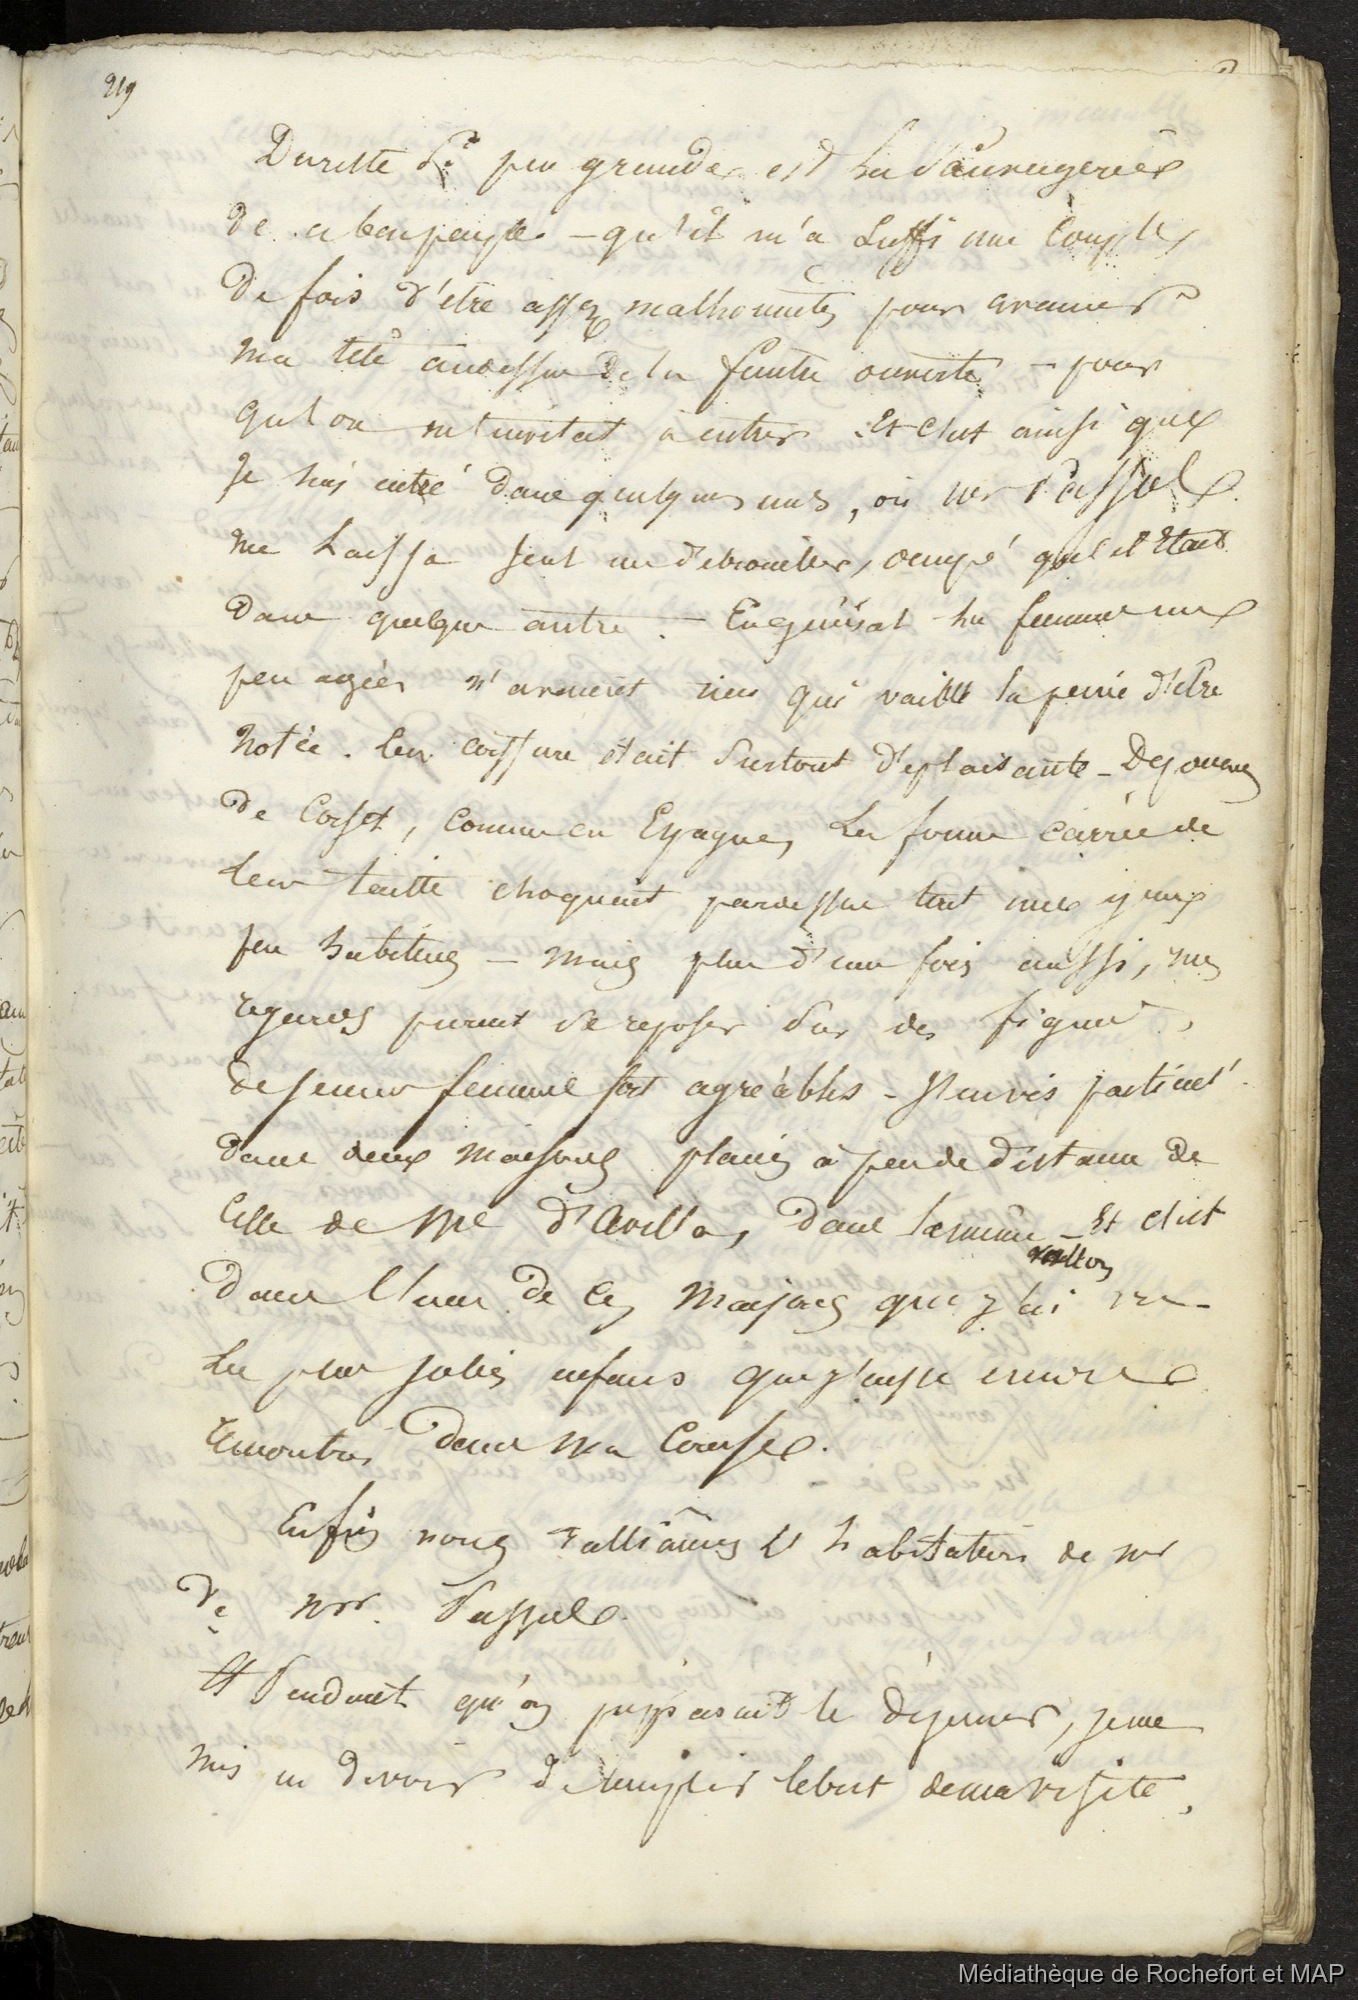 219
Du reste Si peu grande est la Sauvagerie
de ce bon peuple - qu'il m'a Suffi une Couple
de fois d'être assez malhonnête pour avancer
ma tête au dessus de la fenêtre ouverte - pour
qu'on m'invitat à entrer. Et c'est ainsi que
Je suis entré dans quelques unes, où mr Passal
me Laissa seul me debrouiller, occupé qu'il Etait
dans quelque autre. - En général les femmes un
peu agées n'avaient rien qui vaille la peine d'être
notée. leur coiffure était Surtout déplaisante - Dépourvues
de Corset, comme en Espagne, la forme carrée de
leur taille choquait par dessus tout mes yeux
peu habitués - mais plus d'une fois aussi, mes
regards purent se reposer Sur des figures,
de jeunes femmes fort agréables - J'en vis particult
dans deux maisons placées à peu de distance de
Celle de Me d'Avilla, dans la même - Et c'est
dans l'une de Ces maisons que j'ai vu
les plus jolies enfans que j'eusse encore
rencontrés dans ma Course.
Enfin nous ralliâmes l'habitation de mr
de mr. Passal.
Pendant qu'on préparait le déjeuner, je me
mis en devoir de remplir le but de ma visite,
Médiathèque de Rochefort et MAP